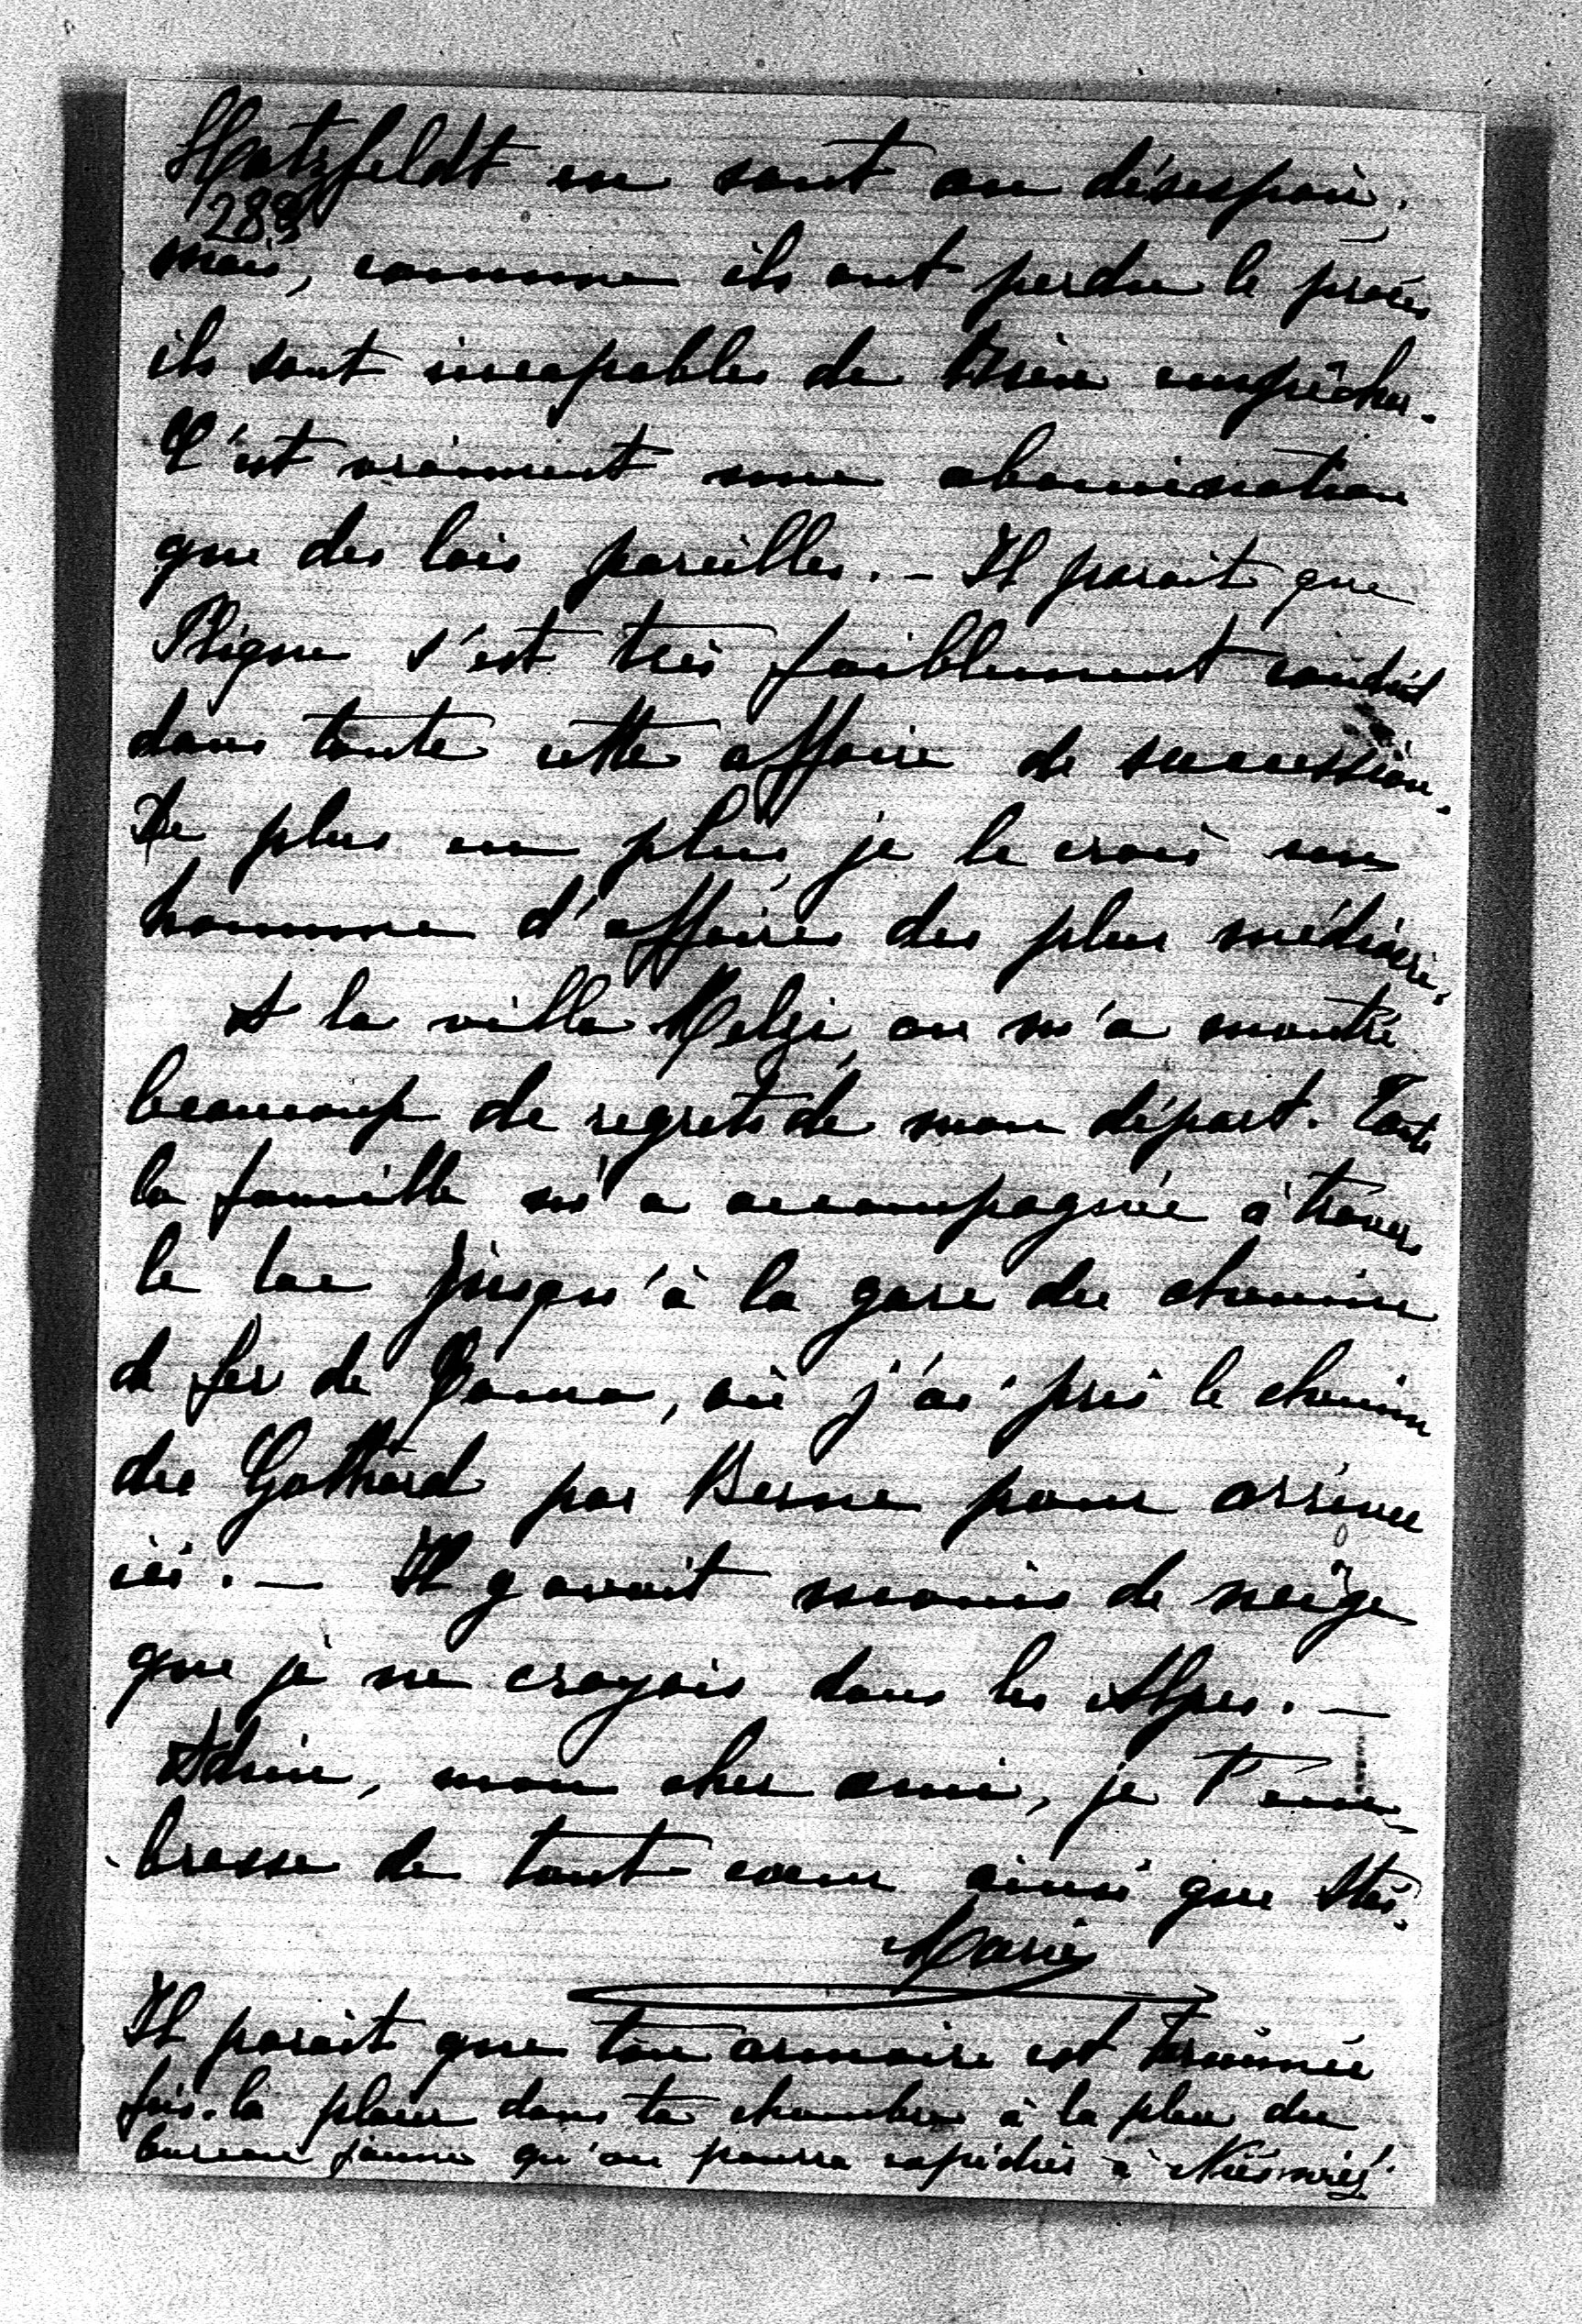 Hatzfeldt en sont au désespoir.
288
mais, comme ils ont perdu le procès
ils sont incapables de rien empêcher.
C'est vraiment une abomination
que des lois pareilles. - Il parait que
s'est très faiblement conduit
dans toute cette affaire de succession.
De plus en plus, je le crois un
homme d'affaires des plus médiocre.
A la villa Melzi, on m'a montré
beaucoup de regrets de mon départ. Toute
la famille m'a accompagnée à travers
le lac jusqu'à la gare du chemin
de fer de Como, où j'ai pris le chemin
du Gothard par Berne pour arriver
ici. - Il y avait moins de neige
que je ne croyais dans les Alpes. -
Adieu, mon cher ami, je t'em-
brasse de tout coeur ainsi que
Marie
Il parait que ton armoire est terminée
fais-la placer dans ta chambre à la place du
bureau jaune qu'on pourra expédier à